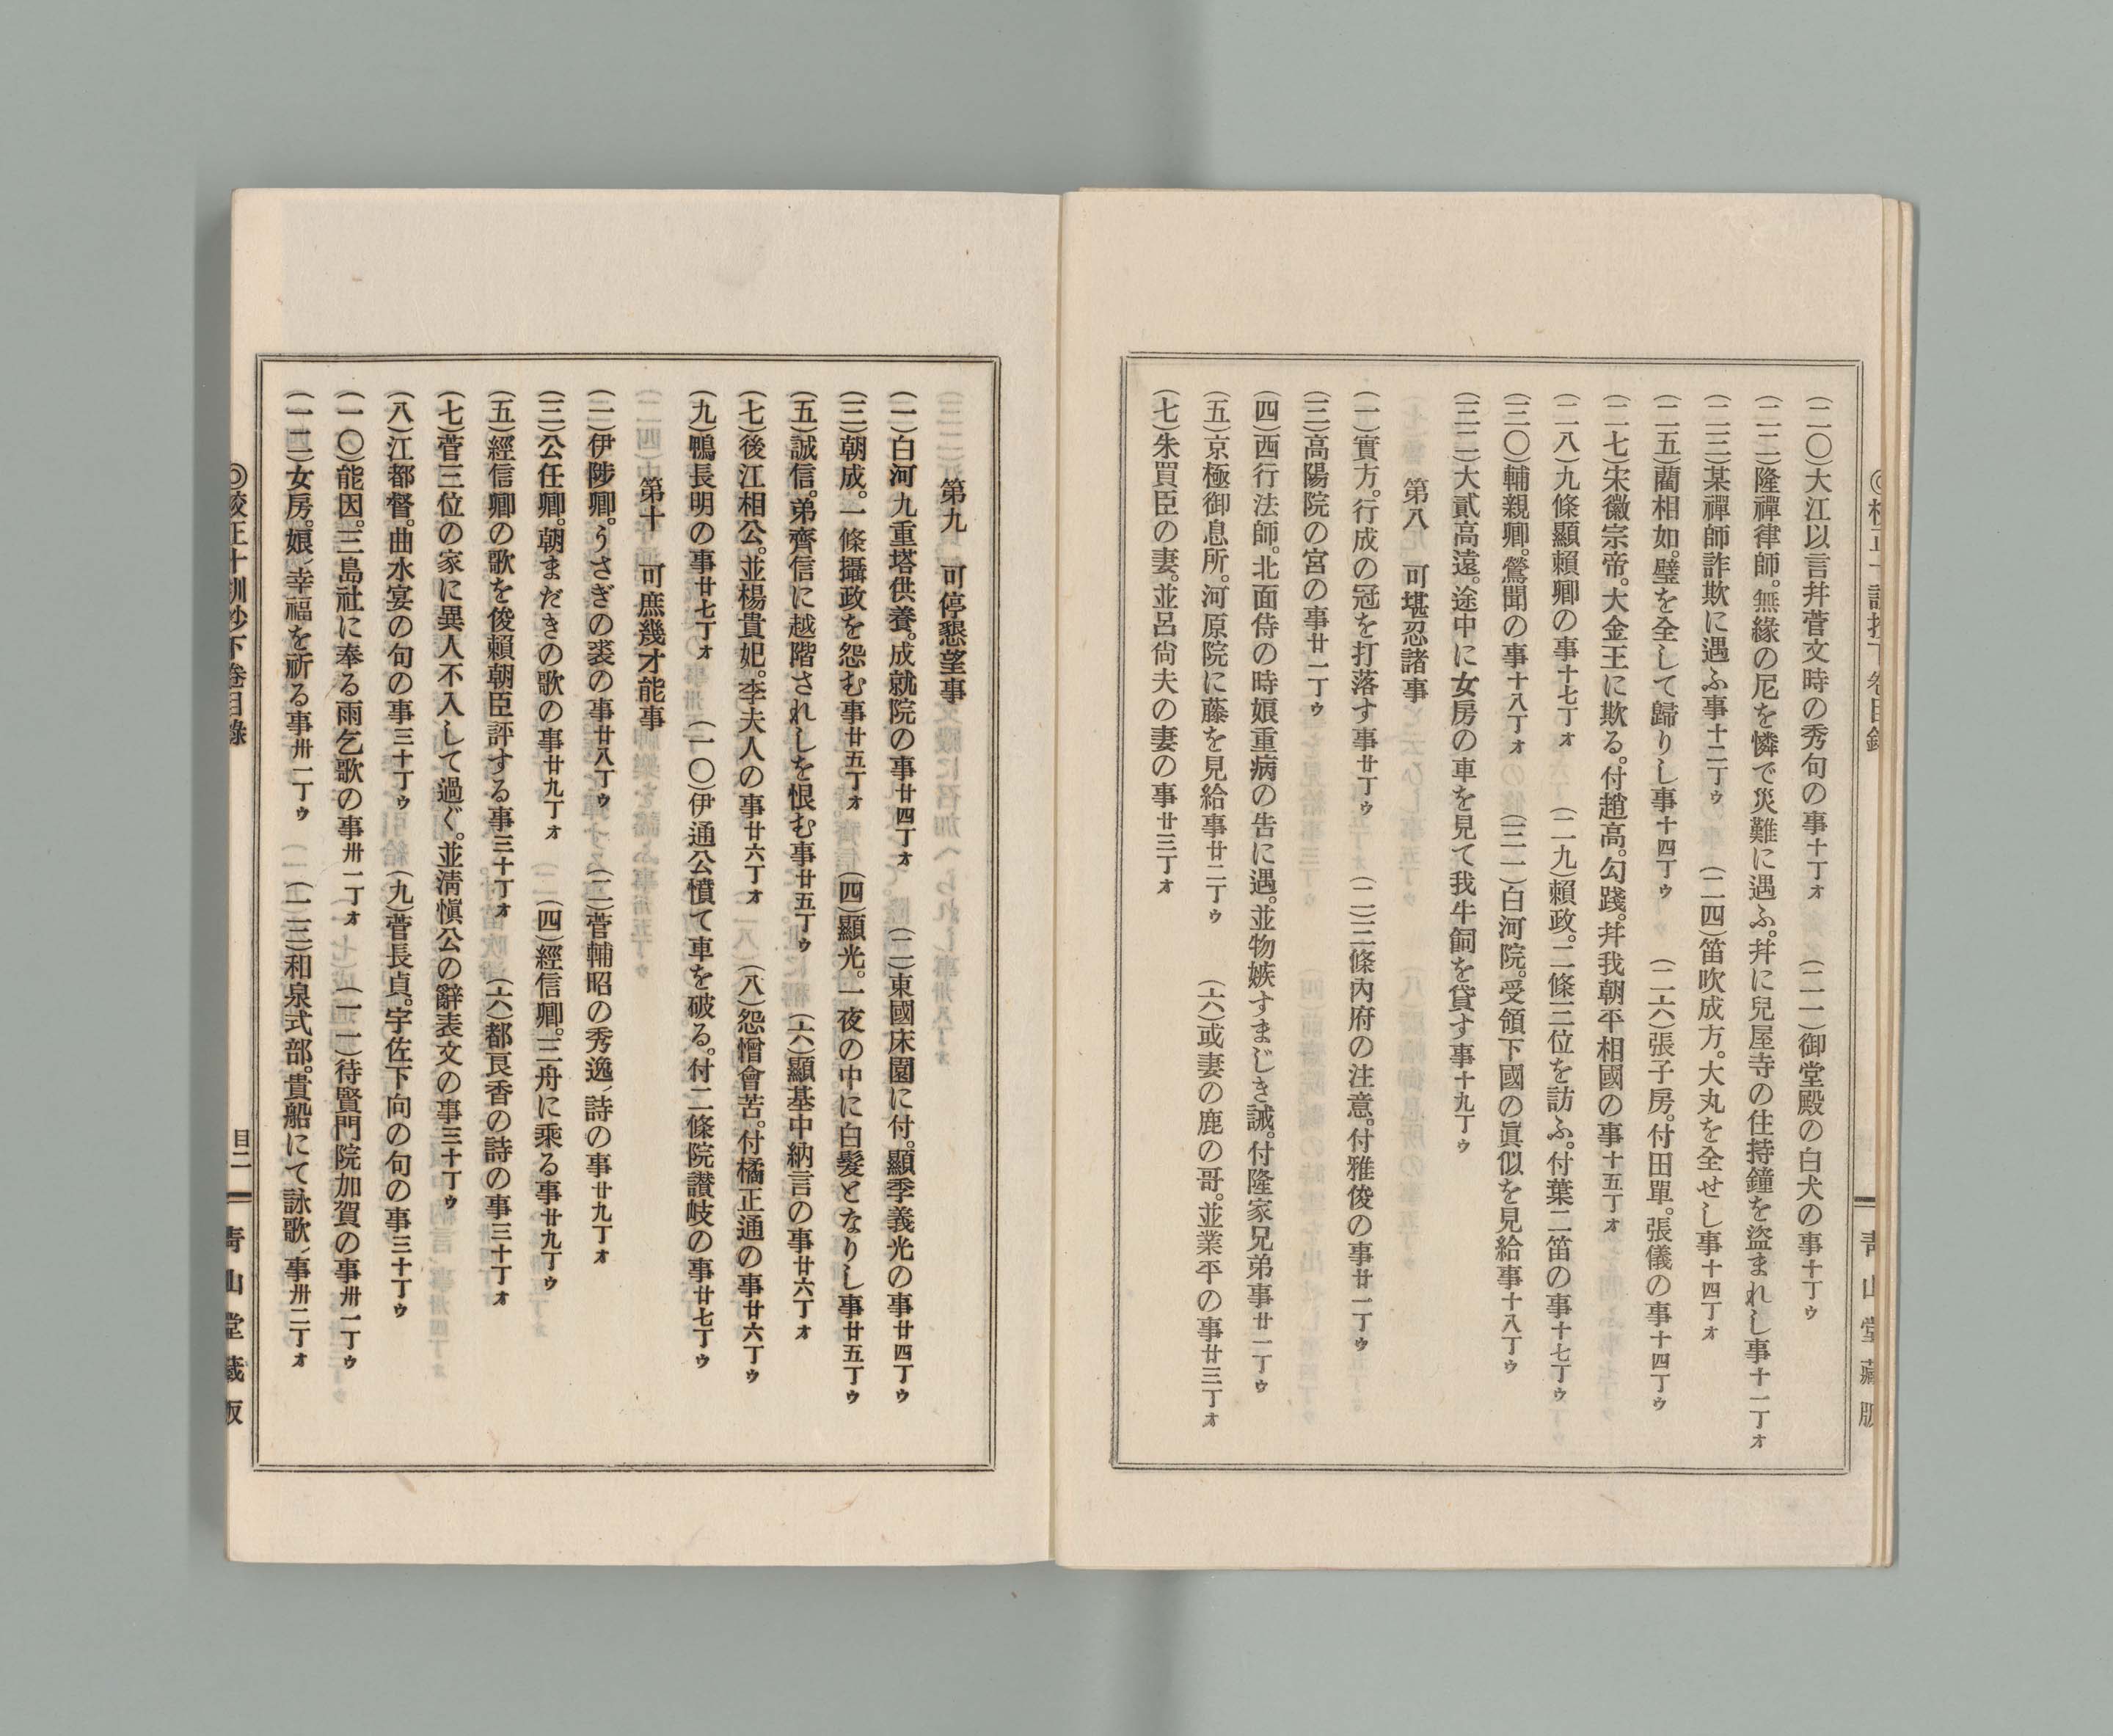 (二〇)大江以言幷菅文時の秀句の事十丁ォ (二一)御堂殿の白犬の事十丁ゥ
(二二)隆禪律師。無緣の尼を憐で災難に遇ふ。幷に兒屋寺の住持鐘を盜まれし事十一丁ォ
(二三)某禪師詐欺に遇ふ事十二丁ゥ (二四)笛吹成方。大丸を全せし事十四丁ォ
(二五)藺相如。璧を全して歸りし事十四丁ゥ (二六)張子房。付田單。張儀の事十四丁ゥ
(二七)宋徽宗帝。大金王に欺る。付趙高。勾踐。幷我朝平相國の事十五丁ォ
(二八)九條顯賴卿の事十七丁ォ (二九)賴政。二條三位を訪ふ。付葉二笛の事十七丁ゥ
(三〇)輔親卿。鶯聞の事十八丁ォ (三一)白河院。受領下國の眞似を見給事十八丁ゥ
(三二)大貳高遠。途中に女房の車を見て我牛飼を貸す事十九丁ゥ
第八 可堪忍諸事
(一)實方。行成の冠を打落す事廿丁ゥ (二)三條內府の注意。付雅俊の事廿一丁ゥ
(三)高陽院の宮の事廿一丁ゥ
(四)西行法師。北面侍の時娘重病の告に遇。並物嫉すまじき誡。付隆家兄弟事廿一丁ゥ
(五)京極御息所。河原院に藤を見給事廿二丁ゥ (六)或妻の鹿の哥。並業平の事廿三丁ォ
(七)朱買臣の妻。並呂尙夫の妻の事廿三丁ォ
第九 可停懇望事
(一)白河九重塔供養。成就院の事廿四丁ォ (二)東國床園に付。顯季義光の事廿四丁ゥ
(三)朝成。一條攝政を怨む事廿五丁ォ (四)顯光。一夜の中に白髮となりし事廿五丁ゥ
(五)誠信。弟齊信に越階されしを恨む事廿五丁ゥ (六)顯基中納言の事廿六丁ォ
(七)後江相公。並楊貴妃。李夫人の事廿六丁ォ (八)怨憎會苦。付橘正通の事廿六丁ゥ
(九)鴨長明の事廿七丁ォ (一〇)伊通公憤て車を破る。付二條院讃岐の事廿七丁ゥ
第十 可庶幾才能事
(一)伊陟卿。うさぎの裘の事廿八丁ゥ (二)菅輔昭の秀逸ノ詩の事廿九丁ォ
(三)公任卿。朝まだきの歌の事廿九丁ォ (四)經信卿。三舟に乘る事廿九丁ゥ
(五)經信卿の歌を俊賴朝臣評する事三十丁ォ (六)都良香の詩の事三十丁ォ
(七)菅三位の家に異人不入して過ぐ。並淸愼公の辭表文の事三十丁ゥ
(八)江都督。曲水宴の句の事三十丁ゥ (九)菅長貞。宇佐下向の句の事三十丁ゥ
(一〇)能因。三島社に奉る雨乞歌の事卅一丁ォ (一一)待賢門院加賀の事卅一丁ゥ
(一二)女房。娘ノ幸福を祈る事卅一丁ゥ (一三)和泉式部。貴船にて詠歌ノ事卅二丁ォ
◎校正十訓抄下卷目錄 目二 靑山堂藏版